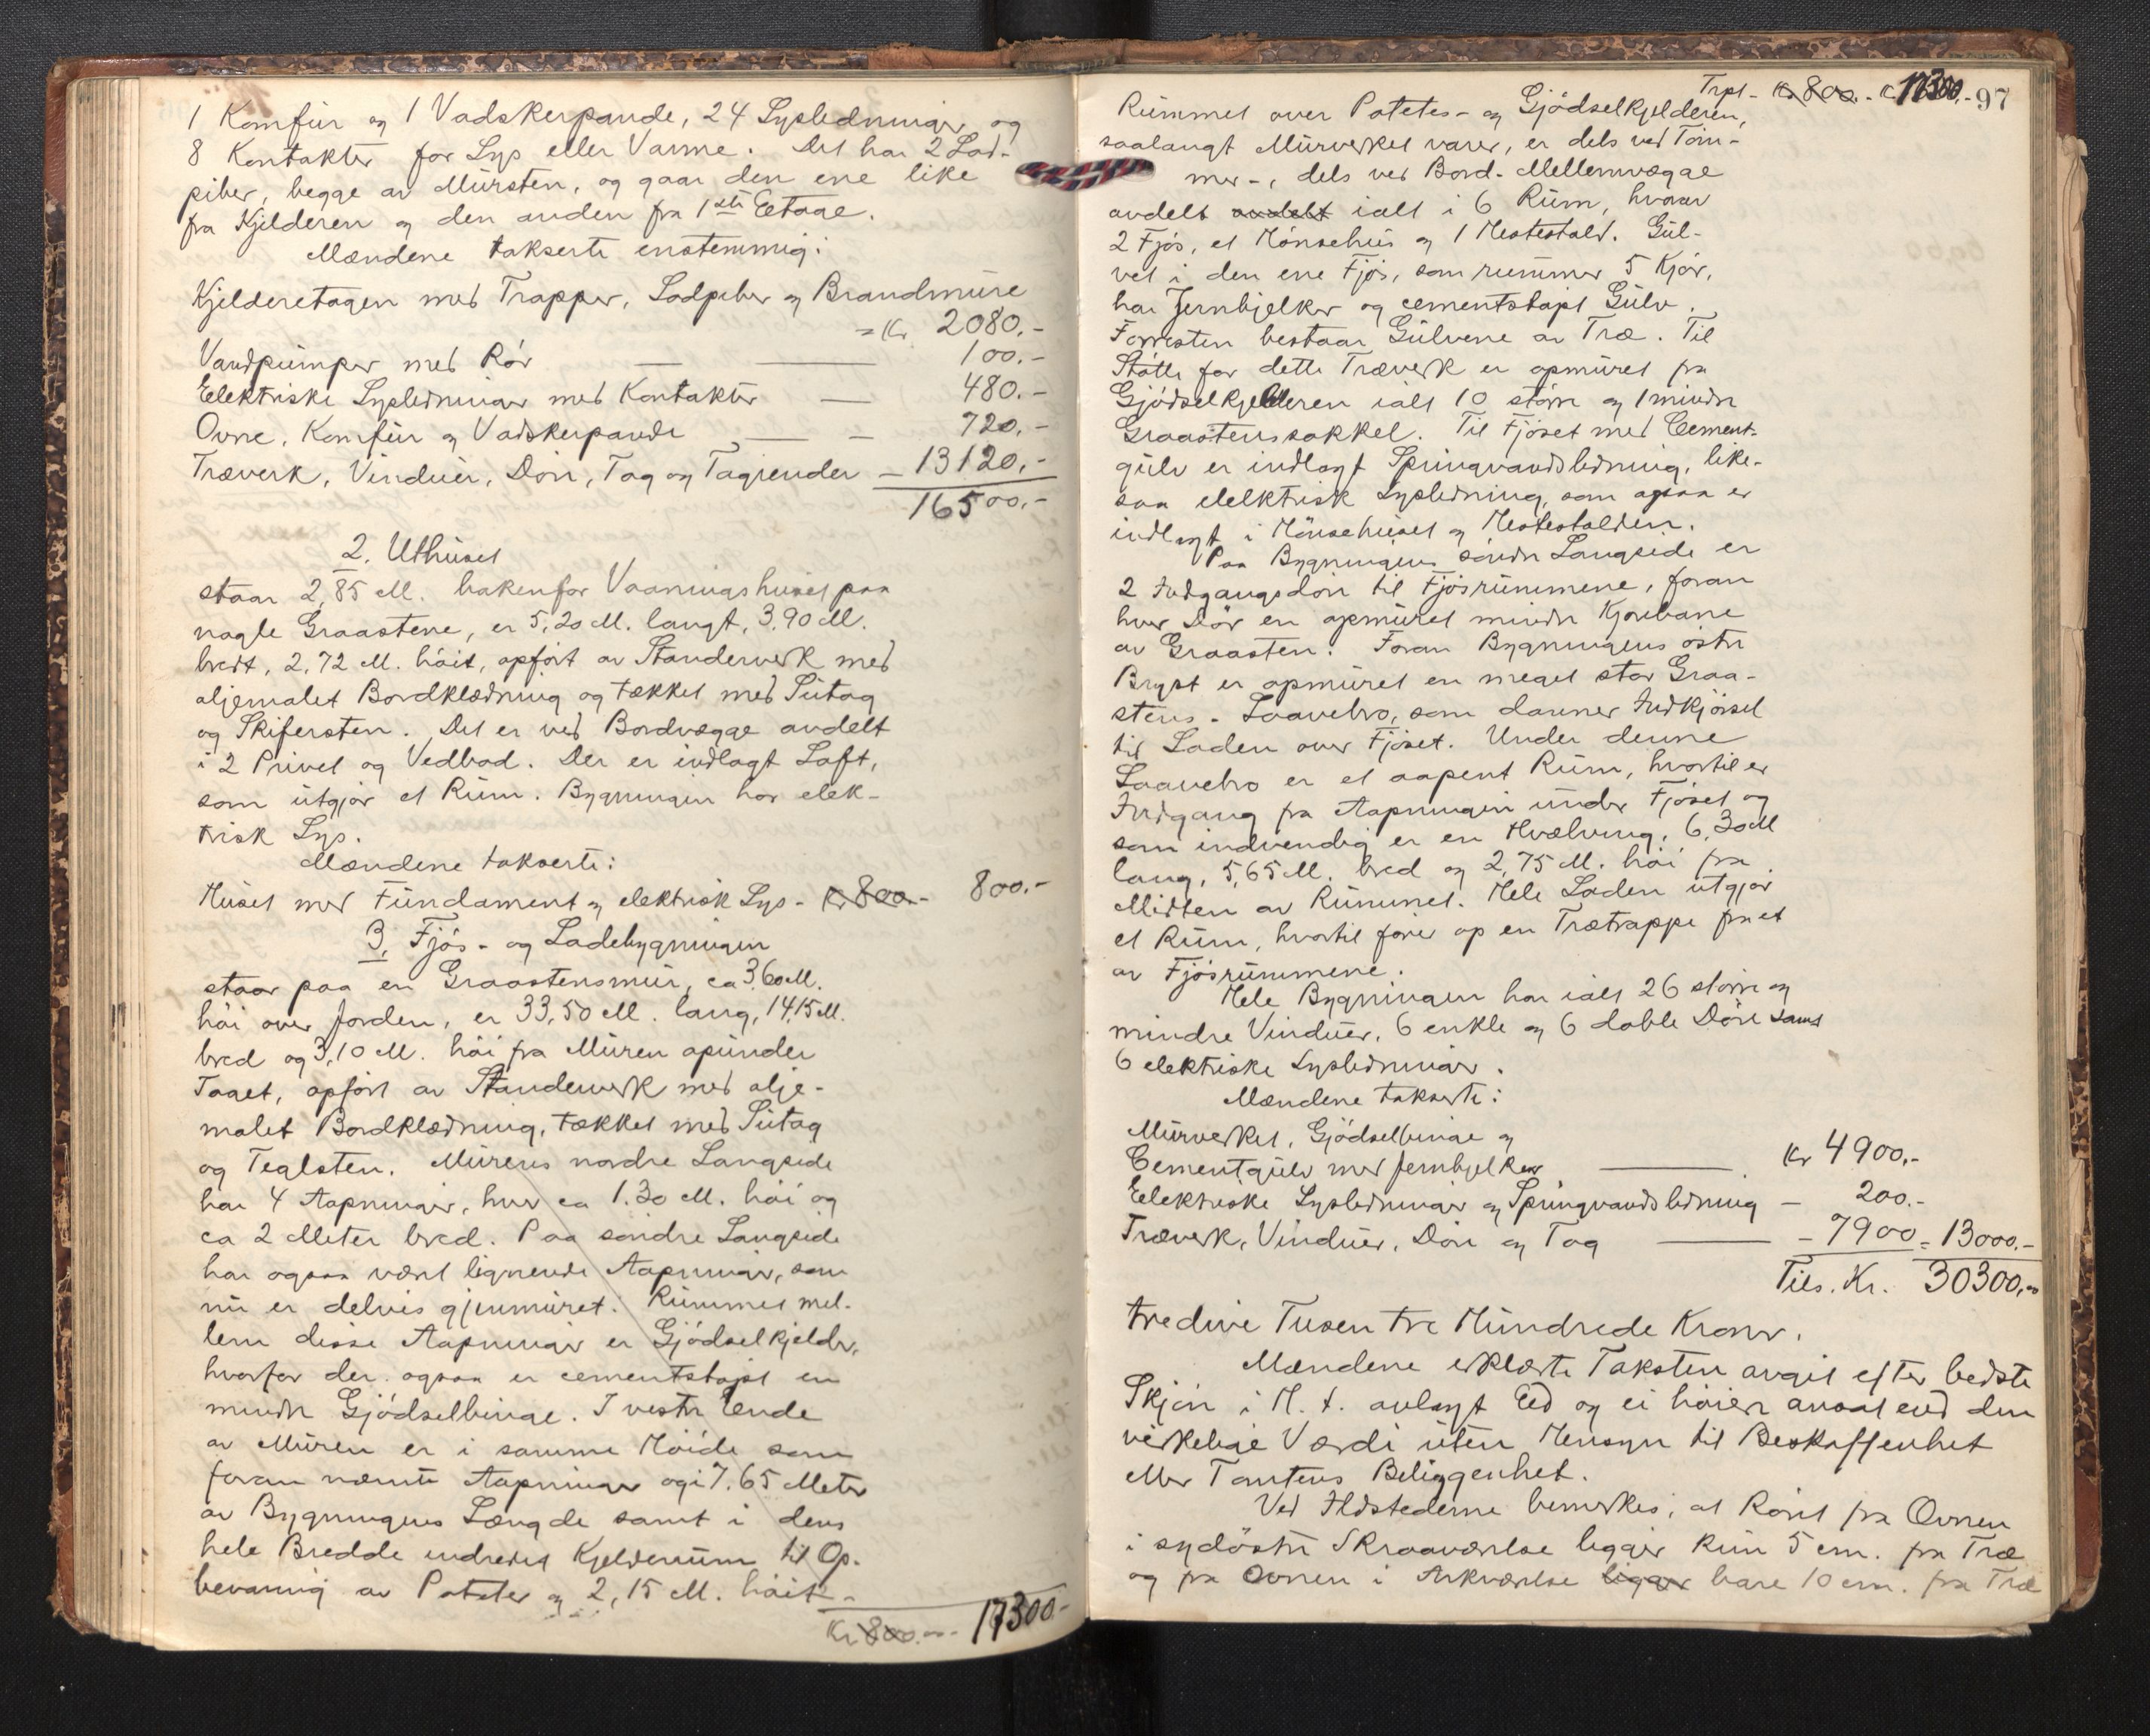 1 Komfür og 1 Vadskerpande, 24 Lysledninger og
8 Kontakter for Lys eller Varme. Det har 2 Lod-
piber, begge av Mürsten, og gaar den ene like
fra Kjelderen og den anden fra 1ste Eetage.
Mændene takserte enstemmig:
Kjelderetagen med Trapper, Lodpiber og Brandmüre
= Kr 2080.-
Vandpümper med Rör — — 100.-
Elektriske Lysledninger med Kontakter — 480.-
Ovne, Komfür og Vadskerpande — — 720.-
Træverk, Vindüer, Döre, Tag og Tagrender — 13120.-
16500.-
2. Uthüset
staar 2,85 M. bakenfor Vaaningshüset paa
nogle Graastene, er 5,20 M. langt, 3,90 M.
bredt, 2,72 M. höit, opfört av Standerverk med
oljemalet Bordklædning og tækket med Sütag
og Skifersten. Det er ved Bordvægge avdelt
i 2 Privet og Vedbod. Der er indlagt Loft,
som ütgjör et Rüm. Bygningen har elek-
trisk Lys.
Mændene takserte:
Hüset med Fündament og elektrisk Lys - Kr 800.- 800.-
3. Fjös- og Ladebygningen
staar paa en Graastensmür, ca 3,60 M.
höi over Jorden, er 33,50 M. lang, 14,15 M.
bred og 3,10 M. höi fra Müren opünder
Taget, opfört av Standerverk med olje-
malet Bordklædning, tækket med Sütag
og Teglsten. Mürens nordre Langside
har 4 Aapninger, hver ca 1.30 M. höi og
ca 2 Meter bred. Paa söndre Langside
har ogsaa været lignende Aapninger, som
nü er delvis gjenmüret. Rümmet mel-
lem disse Aapninger er Gjödselkjelder,
hvorfor der ogsaa er cementstöpt en
mindre Gjödselbinge. I vestre Ende
av Müren er i samme Höide som
foran nævnte Aapninger og i 7.65 Meter
av Bygningens Længde samt i dens
hele Bredde indredet Kjelderrüm til Op-
bevaring av Poteter og 2,15 M. höit -
Kr 800.- 17300.-
Trpt - Kr 800.- Kr 17300.- 97
Rümmet over Potetes- og Gjödselkjelderen,
saalangt Mürverket varer, er dels ved Töm-
mer-, dels ved Bord-Mellemvægge
avdelt avdelt ialt i 6 Rüm, hvorav
2 Fjös, et Hönsehüs og 1 Hestestald. Gül-
vet i den ene Fjös, som rümmer 5 Kjör,
har Jernbjelker og cementstöpt Gülv.
Forresten bestaar Gülvene av Træ. Til
Stötte for dette Træverk er opmüret fra
Gjödselkjelderen ialt 10 större og 1 mindre
Graastenssokkel. Til Fjöset med Cement-
gülv er indlagt Springvandsledning, like-
saa elektrisk Lysledning, som ogsaa er
indlagt i Hönsehüset og Hestestalden.
Paa Bygningens söndre Langside er
2 Indgangsdöre til Fjösrümmene, foran
hver Dör en opmüret mindre Kjörebane
av Graasten. Foran Bygningens östre
Bryst er opmüret en meget stor Graa-
stens-Laavebro, som danner Indkjörsel
til Laden over Fjöset. Under denne
Laavebro er et aapent Rüm, hvortil er
Indgang fra Aapningen ünder Fjöset og
som indvendig er en Hvælving, 6,30 M
lang, 5,65 M. bred og 2,75 M. höi fra
Midten av Rümmet. Hele Laden ütgjör
et Rüm, hvortil förer op en Trætrappe fra et
av Fjösrümmene.
Hele Bygningen har ialt 26 större og
mindre Vindüer, 6 enkle og 6 doble Döre samt
6 elektriske Lysledninger.
Mændene takserte:
Mürverket, Gjödselbinge og
Cementgülv med Jernbjelker — Kr 4900.-
Elektriske Lysledninger og Springvandsledning — 200.-
Træverk, Vindüer, Döre og Tag — - 7900 = 13000.-
Tils. Kr. 30300.-
tredive Tusen tre Hündrede Kroner.
Mændene erklærte Taksten avgit efter bedste
Skjön i H. t. avlagt Ed og ei höiere ansat end den
virkelige Værdi üten Hensyn til Beskaffenhet
eller Tomtens Beliggenhet.
Ved Ildstederne bemerkes, at Röret fra Ovnen
i sydöstre Skraaværelse ligger kün 5 cm. fra Træ
og fra Ovnen i Arkværelse ligger bare 10 cm. fra Træ